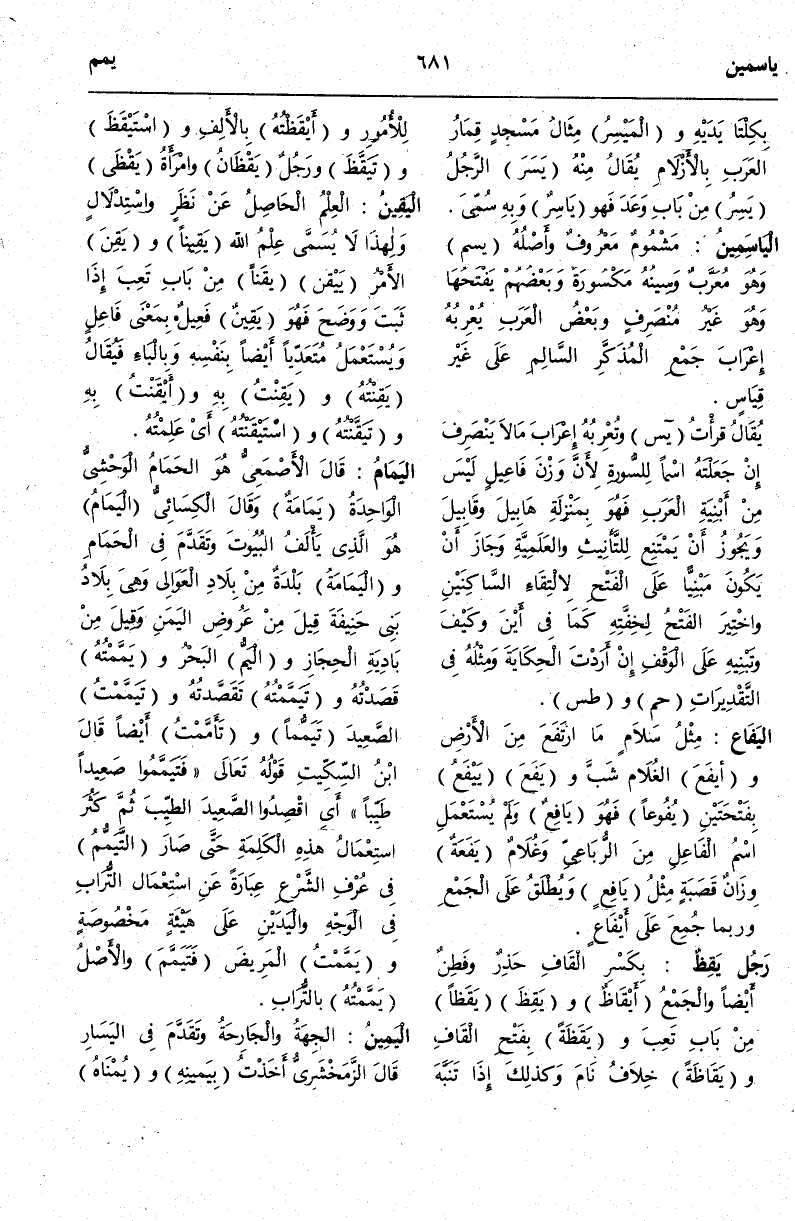 ياسمين
٦٨١
يمم
بِكِلْتَا يَدَيْهِ و ( الْمَيْسِرُ ) مِثَالُ مَسْجِدٍ قِمَارُ
العَرَبِ بِالْأَزْلَامِ يُقَالُ مِنْهُ ( يَسَرَ ) الرَّجُلُ
( يَسِرُ ) مِنْ بَابِ وَعَدَ فَهو ( يَاسِرٌ ) وَبِهِ سُمِّىَ .
الْيَاسَمِينُ : مَشْمُومٌ مَعْرُوفٌ وأَصْلُهُ ( يسم )
وَهُوَ مُعَرَّبٌ وَسِينُهُ مَكْسُورَةٌ وَبَعْضُهُمْ يَفْتَحُهَا
وَهُوَ غَيْرُ مُنْصَرِفٍ وبَعْضُ الْعَرَبِ يُعْرِبُهُ
إِعْرَابَ جَمْعِ الْمُذَكَّرِ السَّالِمِ عَلَى غَيْرِ
قِيَاسٍ .
يُقَالُ قرأْتُ ( يٓس ) وتُعْرِبُهُ إِعْرَابَ مَالاَ يَنْصَرِفُ
إِنْ جَعَلْتَهُ اسْماً لِلسُّورَةِ لأَنَّ وَزْنَ فَاعِيلٍ لَيْسَ
مِنْ أَبْنِيَةِ الْعَرَبِ فَهُوَ بِمَنْزِلَةِ هَابِيلَ وقَابِيلَ
وَيَجُوزُ أَنْ يَمْتَنِعَ لِلتَّأْنِيثِ والْعَلَمِيَّةِ وَجَازَ أَنْ
يَكُونَ مَبْنِيًّا عَلَى الْفَتْحِ لِالْتِقَاءِ السَّاكِنَيْنِ
واخْتِيرَ الفَتْحُ لِخِفَّتِهِ كَمَا فِى أَيْنَ وكَيْفَ
وتَبْنِيهِ عَلَى الْوَقْفِ إِنْ أَرَدْتَ الْحِكَايَةَ ومِثْلُهُ فِى
التَّقْدِيرَاتِ ( حم ) و ( طس ) .
اليَفَاعِ : مِثْلُ سَلاَمٍ مَا ارْتَفَعَ مِنَ الْأَرْضِ
و ( أيفَعَ ) الغُلَام شَبَّ و ( يَفَعَ ) ( يَيْفَعُ )
بِفَتْحَتَيْنِ ( يُفُوعاً ) فَهُوَ ( يَافِعٌ ) وَلَمْ يُسْتَعْمَلِ
اسْمُ الْفَاعِلِ مِنَ الرُّبَاعِىِّ وَغُلَامٌ ( يَفَعَةٌ )
وِزَانُ قَصَبَةٍ مِثْلُ ( يَافِعٍ ) وَيُطْلَقُ عَلَى الْجَمْعِ
وربما جُمِعَ عَلَى أَيْفَاعٍ .
رَجُل يَقِظٌ : بِكَسْرِ الْقَافِ حَذِرٌ وفَطِنٌ
أَيْضاً والْجَمْعُ ( أَيْقَاظٌ ) و ( يَقِظَ ) ( يَقَظاً )
مِنْ بَابِ تَعِبَ و ( يَقَظَةً ) بِفَتْحِ الْقَافِ
و ( يَقَاظَةً ) خِلاَفُ نَامَ وَكذلِكَ إِذَا تَنَبَّهَ
لِلْأُمُورِ و ( أَيْقَظْتُهُ ) بِالْأَلِفِ و ( اسْتَيْقَظَ )
و ( تَيَقَّظَ ) ورَجُلٌ ( يَقْظَانُ ) وامْرَأَةٌ ( يَقْظَى )
الْيَقِينُ : الْعِلْمُ الْحَاصِلُ عَنْ نَظَرٍ واسْتِدْلَالٍ
وَلِهذَا لَا يُسَمَّى عِلْمُ اللهِ ( يَقِيناً ) و ( يَقِنَ )
الأَمْرُ ( يَيْقَن ) ( يَقَناً ) مِنْ بَابِ تَعِبَ إِذَا
ثَبَتَ وَوَضَحَ فَهُوَ ( يَقِينٌ ) فَعِيلٌ بِمَعْنَى فَاعِلٍ
وَيُسْتَعْمَلُ مُتَعَدِّياً أَيْضاً بِنَفْسِهِ وَبِالْبَاءِ فَيُقَالُ
( يَقِنْتُهُ ) و ( يَقِنْتُ ) بِهِ و ( أَيْقَنْتُ ) بِهِ
و ( تَيَقَّنْتُهُ ) و ( اسْتَيْقَنْتُهُ ) أَىْ عَلِمْتُهُ .
اليَمَامُ : قَالَ الْأَصْمَعِىُّ هُوَ الحَمَامُ الْوَحْشِىُّ
الْوَاحِدَةُ ( يَمَامَةٌ ) وَقَالَ الْكِسَائِىُّ ( الْيَمَامُ )
هُوَ الَّذِى يَأْلَفُ الْبُيُوتَ وتَقَدَّمَ فِى الْحَمَامِ
و ( الْيَمَامَةُ ) بَلْدَةٌ مِنْ بِلَادِ الْعَوَالِى وَهِىَ بِلَادُ
بَنِى حَنِيفَةَ قِيلَ مِنْ عَرُوضِ الْيَمَنِ وَقِيلَ مِنْ
بَادِيَةِ الْحِجَازِ و ( الْيَمُّ ) البَحْرُ و ( يَمَّمْتُهُ )
قَصَدْتُهُ و ( تَيَمَّمْتُهُ ) تَقَصَّدتُهُ و ( تَيَمَّمْتُ )
الصَّعِيدَ ( تَيَمُّماً ) و ( تَأَمَّمْتُ ) أَيْضاً قَالَ
ابْنُ السِّكِّيتِ قَوْلُهُ تَعَالَى « فَتَيَمَّمُوا صَعِيداً
طَيِّباً » أَىِ اقْصِدُوا الصَّعِيدَ الطَّيِّبَ ثُمَّ كَثُرَ
استِعْمَالُ هذِهِ الْكَلِمَةِ حَتَّى صَارَ ( التَّيَمُّمُ )
فِى عُرْفِ الشَّرْعِ عِبَارَةً عَنِ اسْتِعْمَالِ التُّرَابِ
فِى الْوَجْهِ والْيَدَيْنِ عَلَى هَيْئَةٍ مَخْصُوصَةٍ
و ( يَمَّمْتُ ) الْمَرِيضَ ( فَتَيَمَّمَ ) والْأَصْلُ
( يَمَّمْتُهُ ) بالتُّرَابِ .
الْيَمِينُ : الجِهَةُ والْجَارِحَةُ وتَقَدَّمَ فِى اليَسَارِ
قَالَ الزَّمَخْشَرِىُّ أَخَذْتُ ( بِيَمِينِهِ ) و ( يُمْنَاهُ )